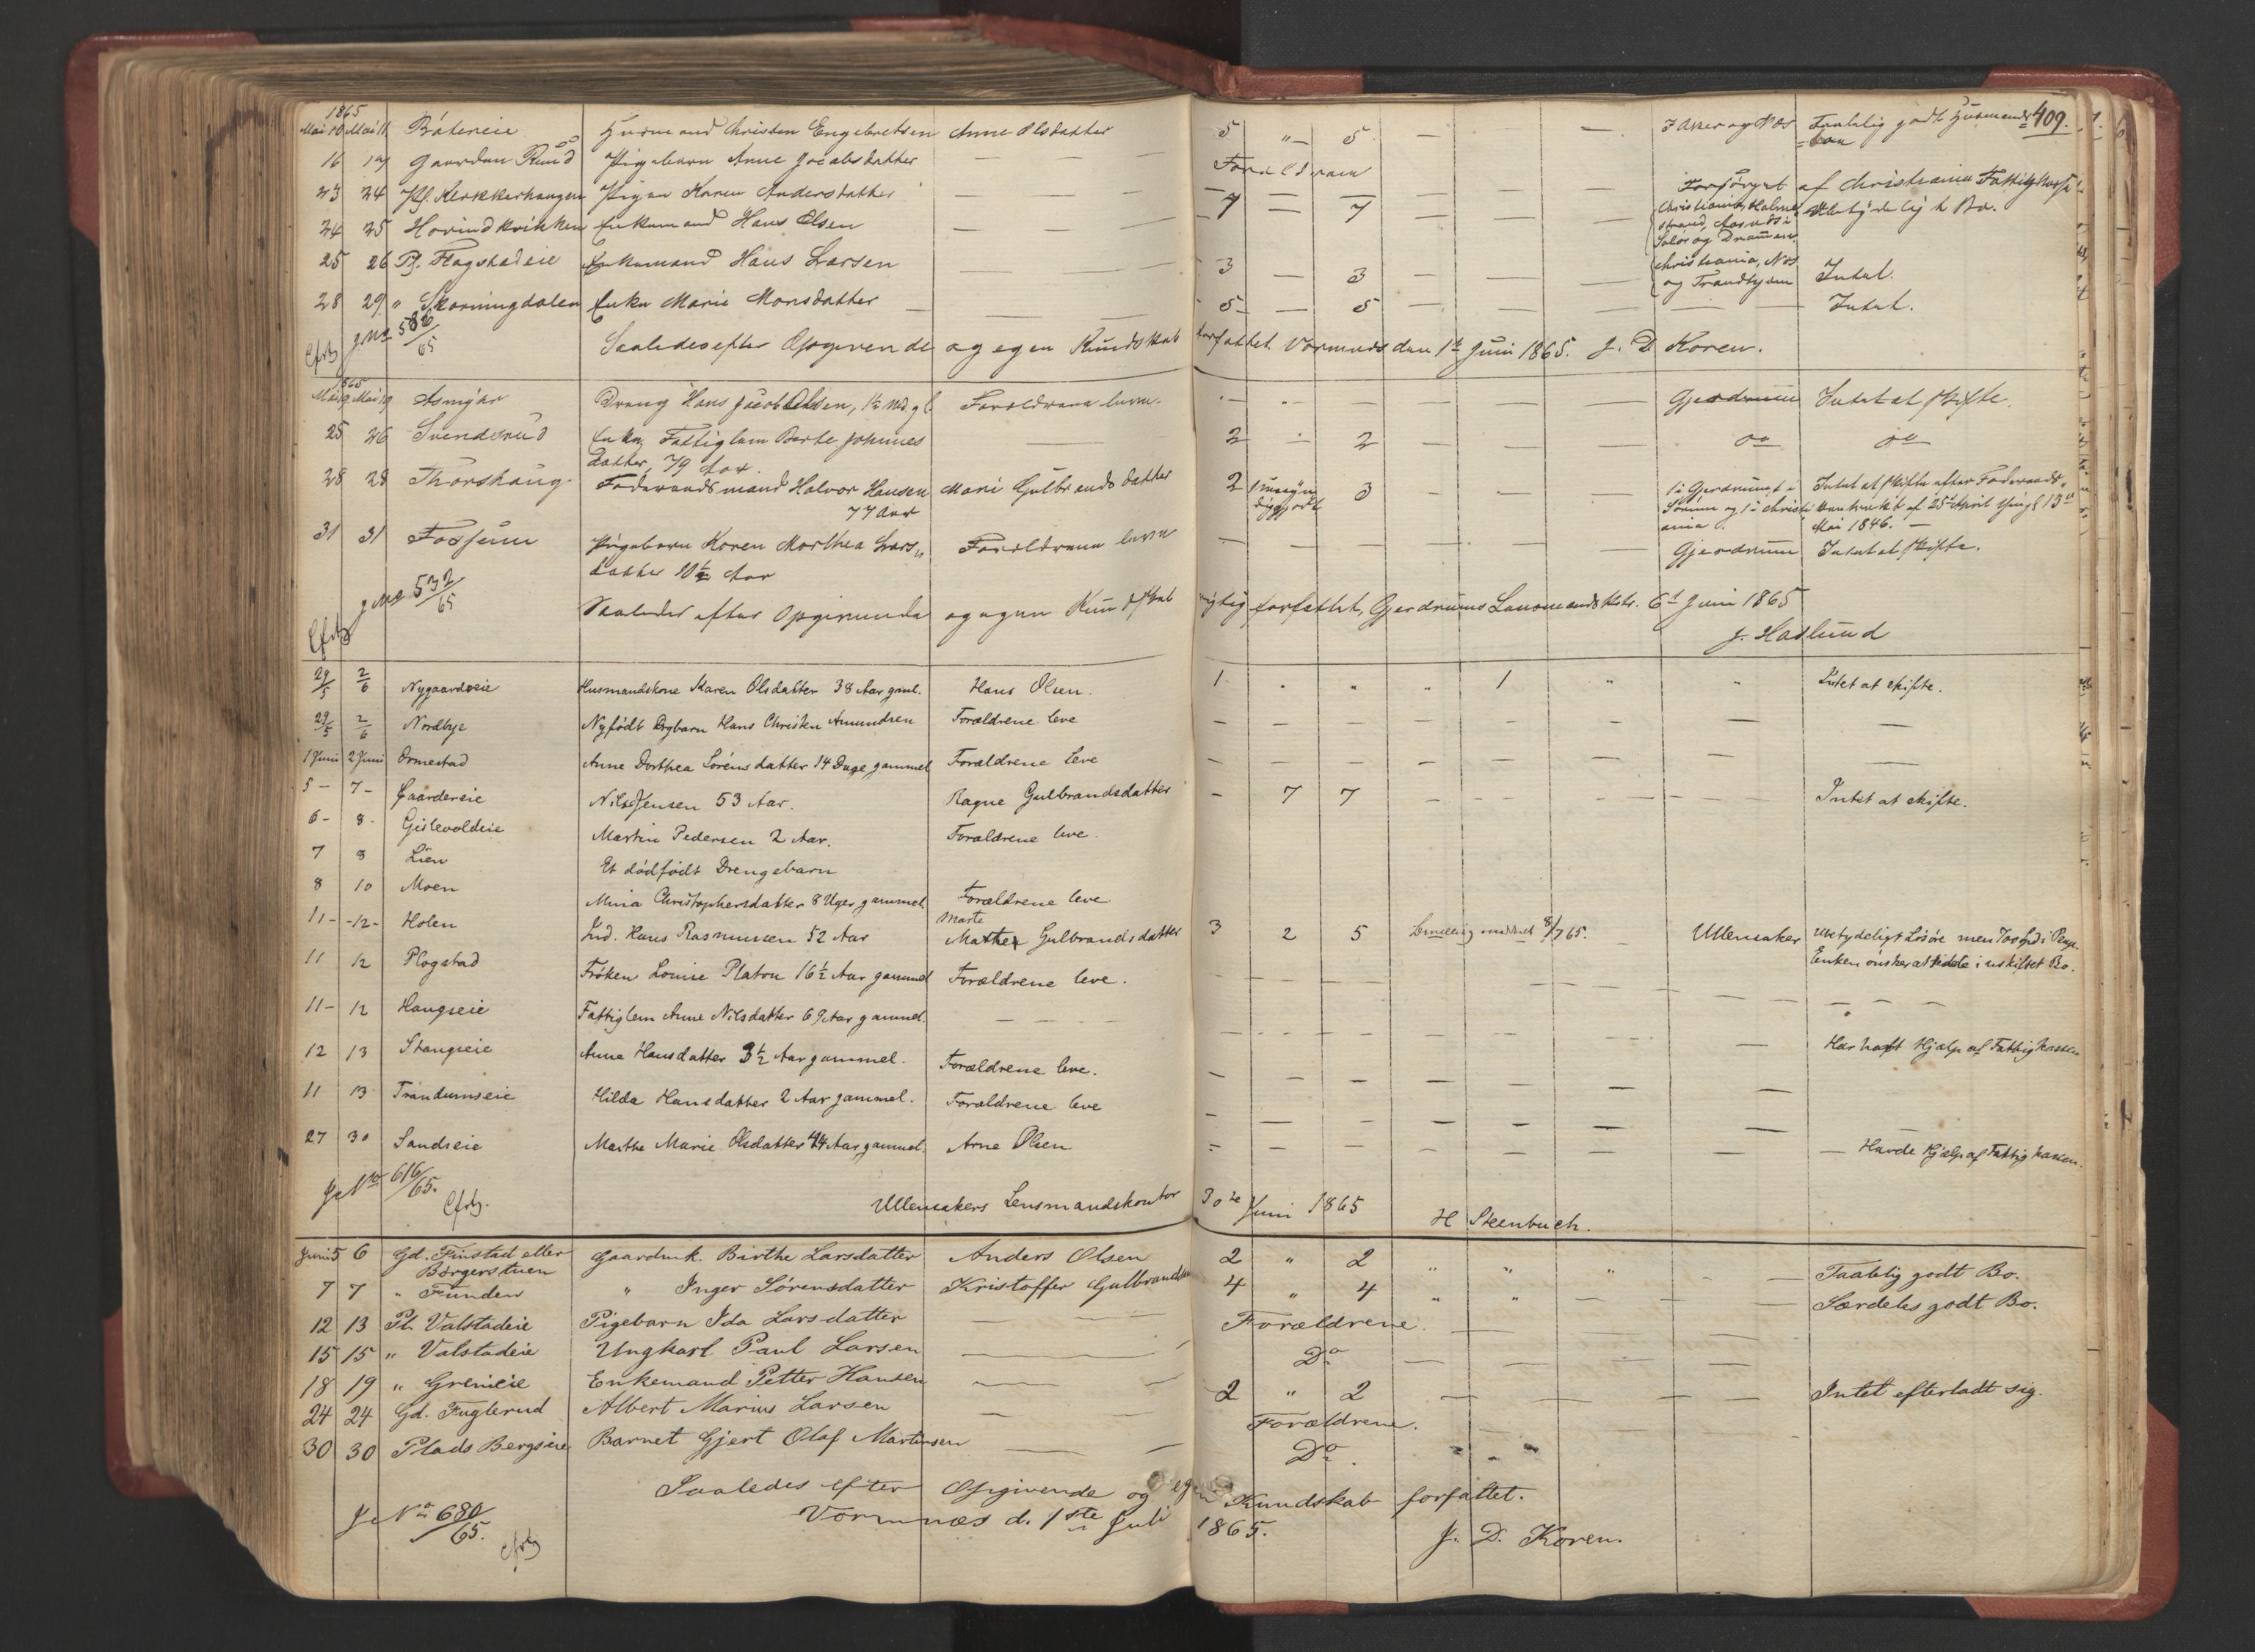 409.
1865
Mai 10 Mai 11 Bátereie Husmand Christen Engebretsen Anne Olsdatter 5 " 5 — — — I Aker og Næs Taalelig godt Husmands-
boe
16 17 Gaarden Ruud Pigebarn Anne Jacobsdatter — — — Forældrene
23 24 Pl. Klekkerhaugen Pigen Karen Andersdatter Forsørget af Christiania Fattigkasse
24 25 Horindkrikken Enkemand Hans Olsen — — — 7 — 7 — — — Christiania, Holme-
strand, Aasnes i
Solør og Drammen. Ubetydeligt Bo.
25 26 Pl. Flagstadeie Enkemand Hans Larsen — — — 3 — 3 — — — Christiania, Næs
og Trondhjem Intet.
28 29 " Skovningdalen Enke Marie Monsdatter — — — 5 — 5 — — — Intet.
J. No 586/65 Saaledes efter Opgivende og egen Kundskab forfattet. Vormnæs den 1te Juni 1865. J. D. Koren.
1865
Mai 19 Mai 19 Asmyhr Dreng Hans Jacob Olsen, 1½ Md. gl. Forældrene leve. Gjerdrum Intet at skifte.
25 26 Svendsrud Enke, Fattiglem Berte Johannes
datter, 79 Aar. 2 2 — — — Do Do
28 28 Thorshaug Føderaadsmand Halvor Hansen
77 Aar Mari Gulbrandsdatter 2 3 — — — 1 i Gjerdrum, 1 i
Sørum og 1 i Christi
ania. Intet at skifte efter Føderaads-
kontrakt af 25de April thingl. 13de
Mai 1846. —
31 31 Fossum Pigebarn Karen Marthea Lars-
datter 10½ Aar Forældrene leve — — — Gjerdrum Intet at skifte.
J No 532/65 Saaledes efter Opgivende og egen Kundskab rigtig forfattet, Gjerdrums Lensmandsktr. 6te Juni 1865
J. Haslund
29/5 2/6 Nygaardseie Husmandskone Karen Olsdatter 38 Aar gaml. Hans Olsen. 1 " " " 1 " " Intet at skifte.
29/5 2/6 Nordbye Nyfødt Drgbarn Hans Christen Amundsen Forældrene leve — — — — — — — —
1 Juni 2 Juni Ormestad Anne Dorthea Sørensdatter 14 Dage gammel Forældrene leve — — — — — — — —
5 — 7 — Gaardereie Nils Jensen 53 Aar. Ragne Gulbrandsdatter — 7 7 — — — — Intet at skifte.
6 — 8 — Gislevoldeie Martin Pedersen 2 Aar. Forældrene leve.
7 8 Lien Et dødfødt Drengebarn
8 10 Moen Mina Christophersdatter 8 Uger gammel. Forældrene leve
11 — 12 — Holen Ind. Hans Rasmussen 52 Aar Marte
Marthe Gulbrandsdatter 3 2 5 8/7 65. — Ullensaker Ubetydeligt Løsøre men 700 Spd i Penge.
Enken ønsker at sidde i uskiftet Bo.
11 12 Plogstad Frøken Louise Platou 16½ Aar gammel Forældrene leve. — — — — — — —
11 — 12 Haugseie Fattiglem Anne Nilsdatter 69 Aar gammel. — — — —
12 13 Stangseie Anne Hansdatter 3½ Aar gammel. Forældrene leve. — Har havt Hjælp af Fattigkassen
11 13 Trandumseie Hilda Hansdatter 2 Aar gammel. Forældrene leve — — — — — — —
27 30 Sandseie Marthe Marie Olsdatter 44 Aar gammel. Arne Olsen — — — — — — — Havde Hjælp af Fattigkassen.
J. No 616/65.
Ullensakers Lensmandskontor 30te Juni 1865 H Steenbuch.
Juni 5 6 Gd. Finstad eller
Borgerstuen Gaardmk. Birthe Larsdatter Anders Olsen 2 " 2 " " " — — Taalelig godt Bo.
7 7 " Funden " Inger Sørensdatter Kristoffer Gulbrandsen 4 " 4 " " — — — Særdeles godt Bo.
12 13 Pl. Valstadeie Pigebarn Ida Larsdatter — — — Forældrene. — — — — —
15 15 " Valstadeie Ungkarl Paul Larsen — — — Do — — — — —
18 19 " Grenieie Enkemand Petter Hansen — — 2 " 2 — — — — — Intet efterladt sig.
24 24 Gd. Fuglerud Albert Marius Larsen — — Forældrene.
30 30 Plads Bergseie Barnet Gjert Olaf Martinsen — — Do.
Saaledes efter Opgivende og egen Kundskab forfattet.
J. No 680/65. Vormnæs d. 1ste Juli 1865. J. D. Koren.